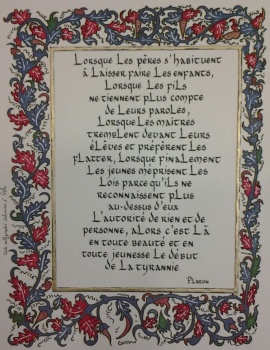 Lorsque Les pères s'habituent
à Laisser faire Les enfants,
Lorsque Les fils
ne tiennent plus compte
de Leurs paroles,
Lorsque Les maîtres
tremblent devant Leurs
élèves et préfèrent Les
flatter, Lorsque finalement
Les jeunes méprisent Les
Lois parce qu'ils ne
reconnaissent plus
au-dessus d'eux
L'autorité de rien et de
personne, alors c'est Là
en toute beauté et en
toute jeunesse Le début
de La tyrannie.
Platon